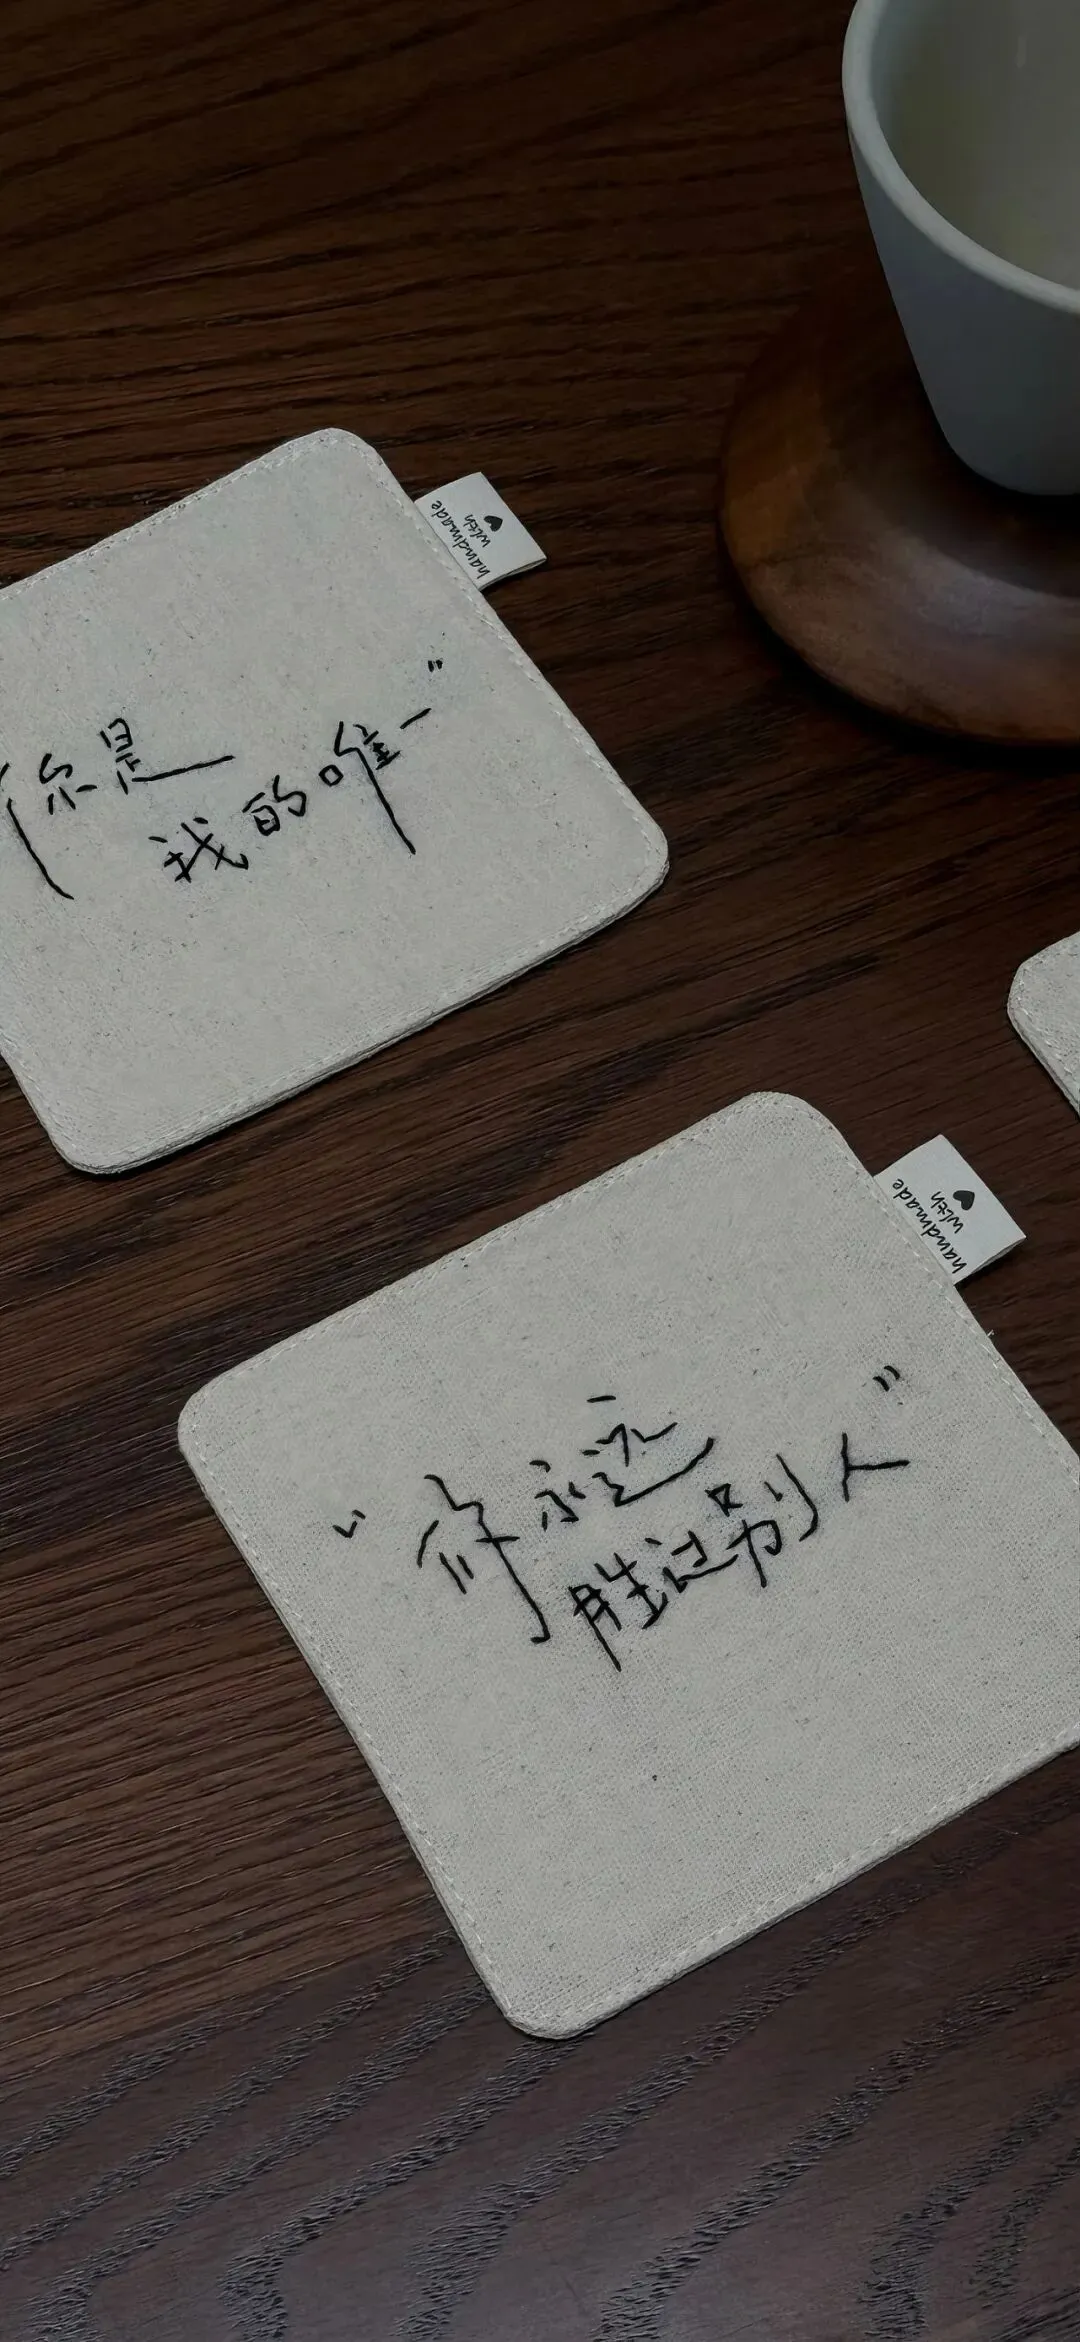 handmade
with ♥
你是
我的唯一”
handmade
with ♥
“你永远
胜过别人”